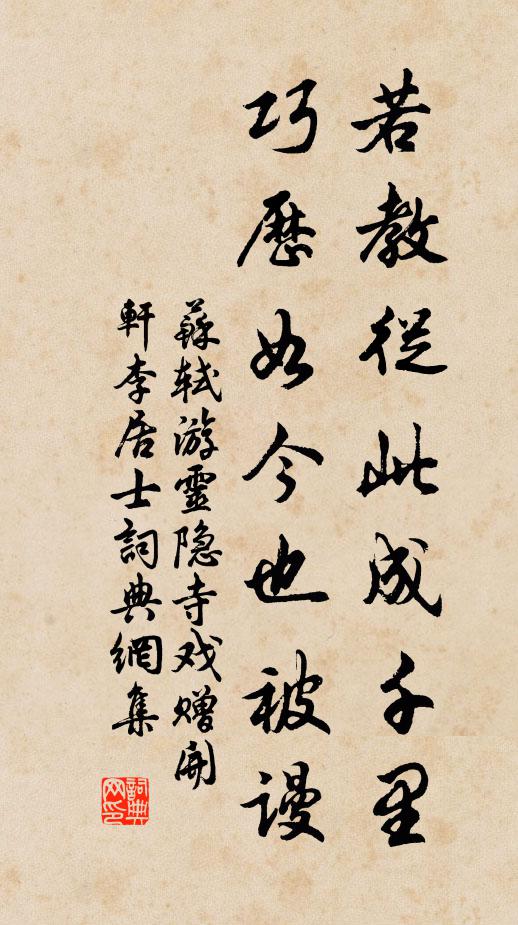 若教從此成千里
巧歷如今也被謾
蘇軾游靈隐寺戏贈開
軒李居士詞典網集
詞典网印